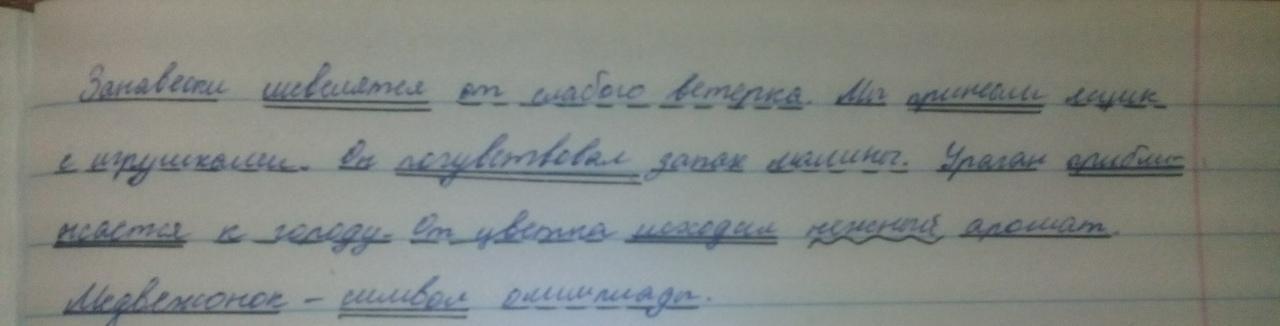 Занавески шевелятся от слабого ветерка. Мы принесли ящик
с игрушками. Он почувствовал запах малины. Ураган прибли-
жается к городу. От цветка исходил нежный аромат.
Медвежонок – символ олимпиады.